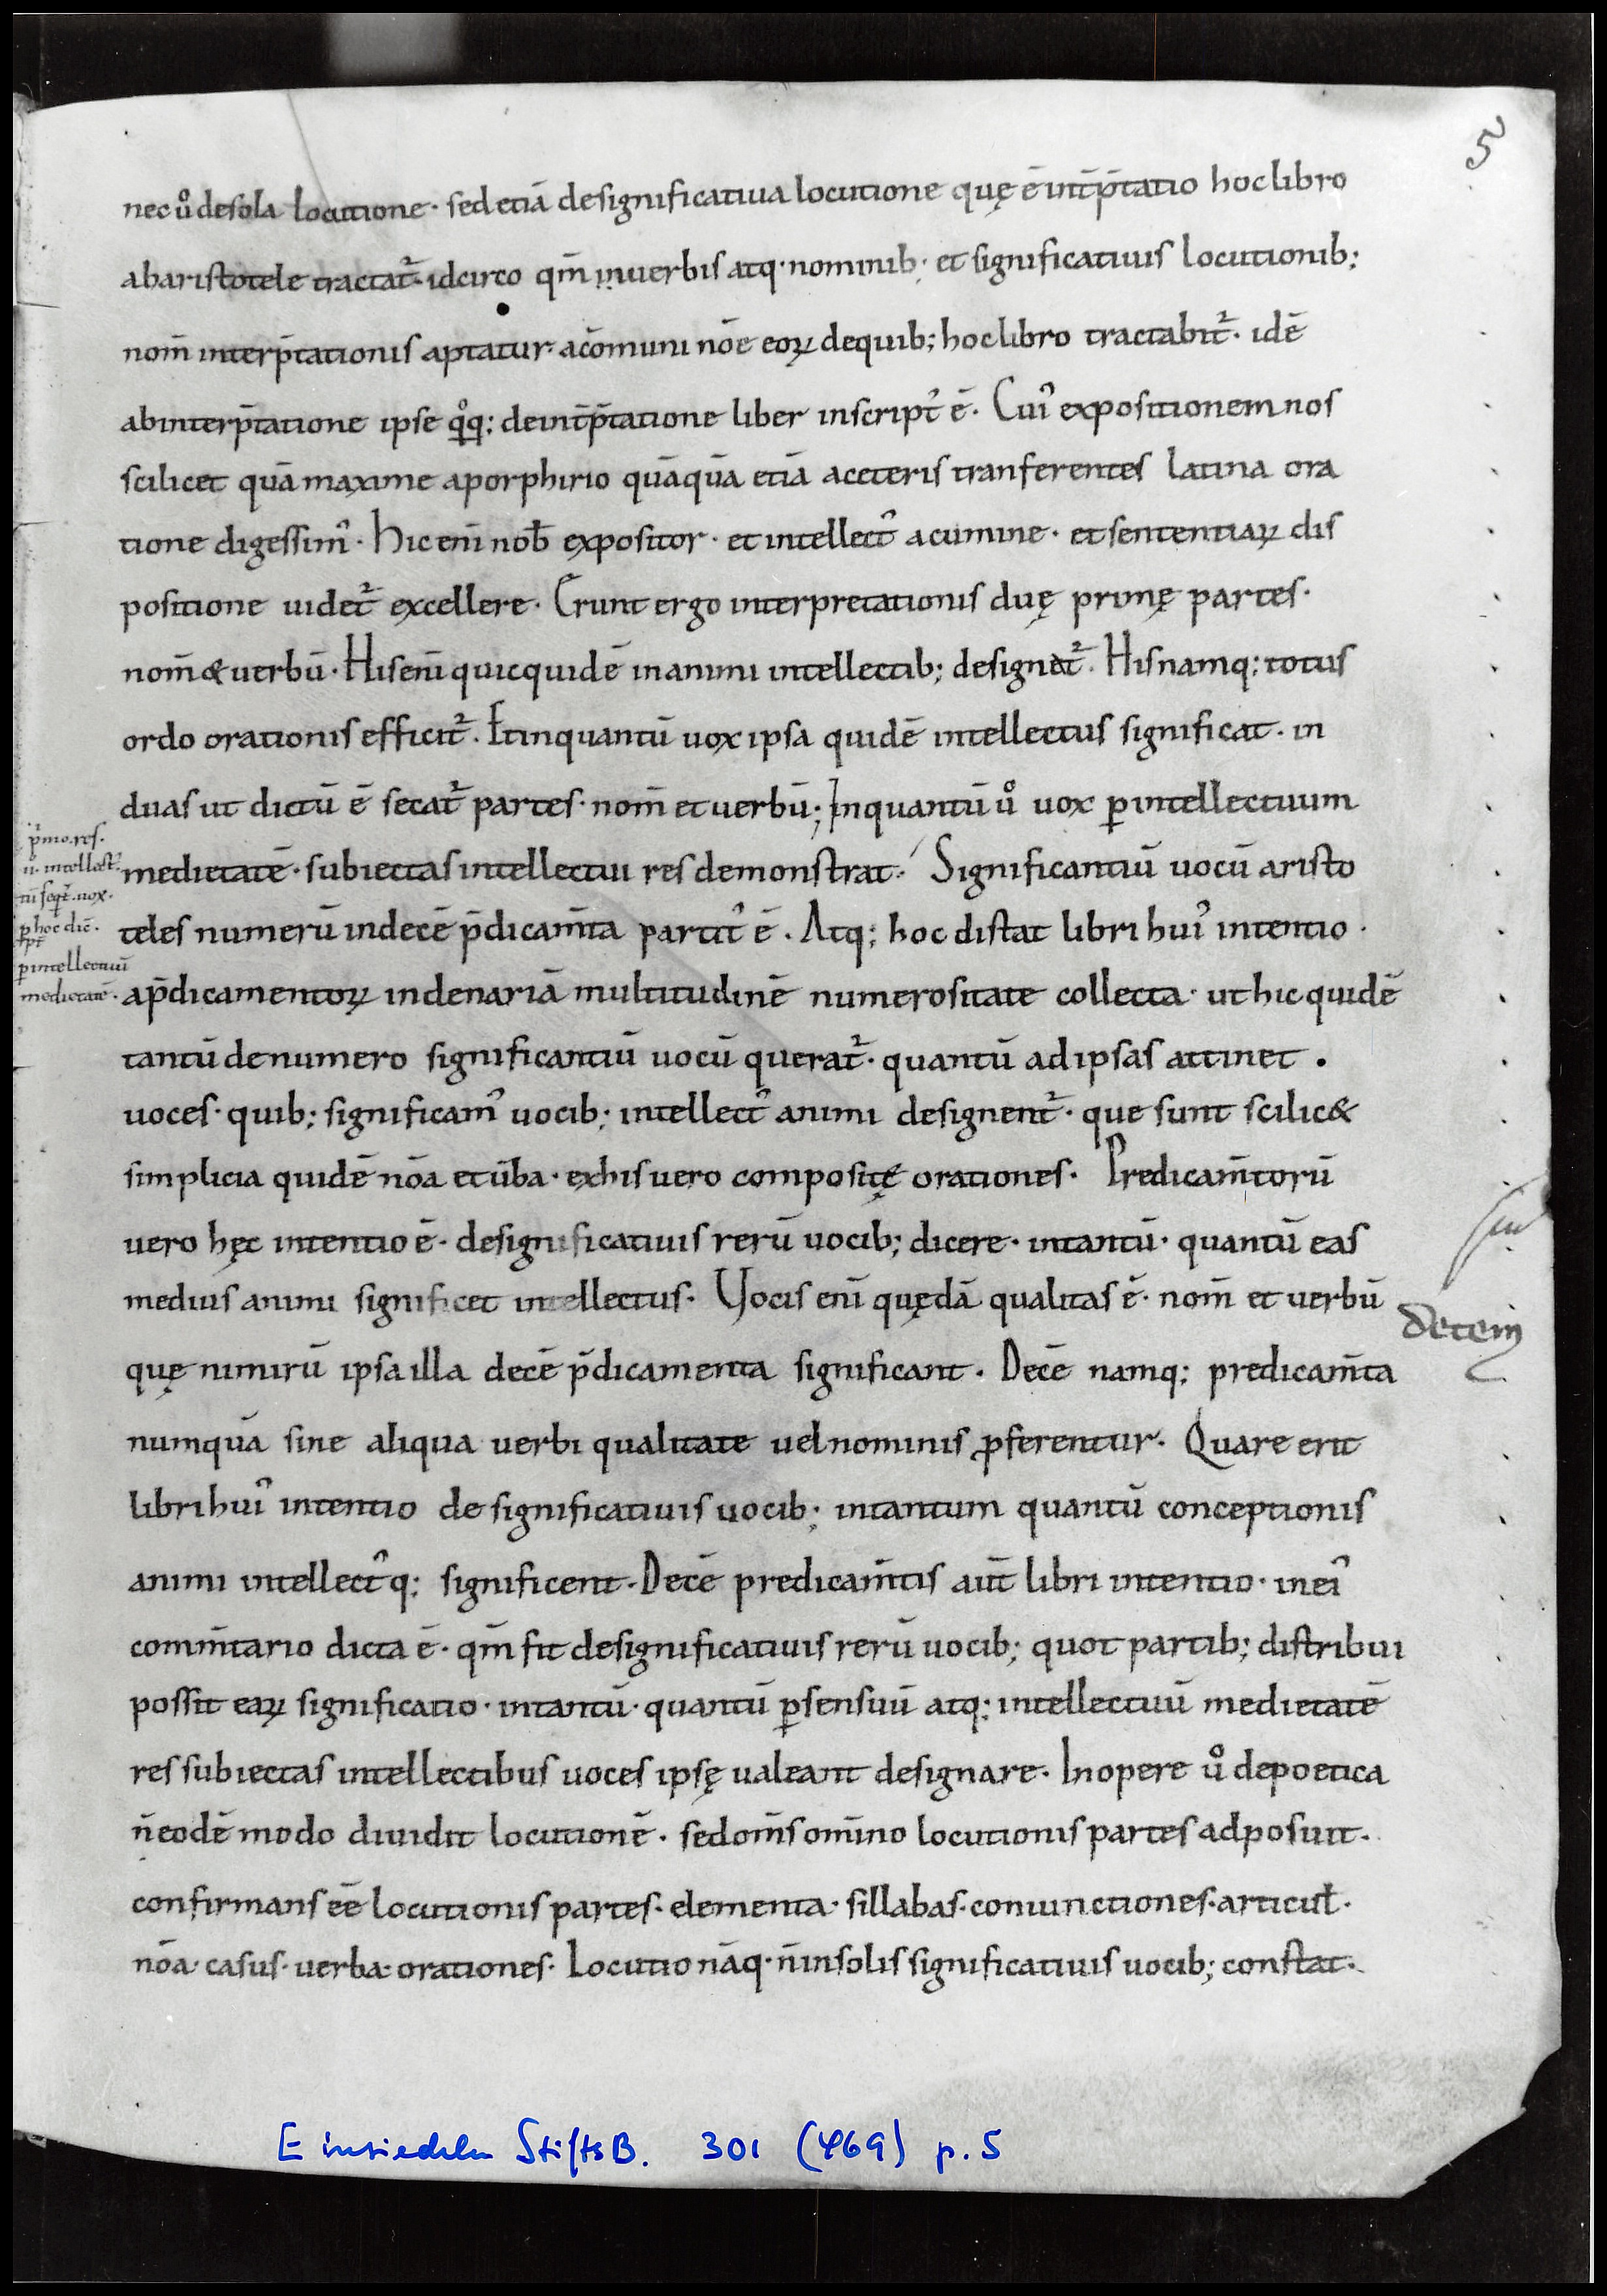 5
nec u͛o desola locutione· sed etiā designificatiua locutione quę ē int̄p̄tatio hoc libro
abaristotele tractat᷑· idcirco qm̄ inuerbis atq· nominib; et significatiuis locutionib;
nom̄ interp̄tationis aptatur· acōmuni nōe eoꝝ dequib; hoc libro tractabit᷑· idē
abinterp̄tatione ipse qͦq; deint̄p̄tatione liber inscriptꝰ ē. Cuiꝰ expositionem nos
scilicet quā maxime aporphirio quāquā etiā aceteris tranferentes latina ora
tione digessimꝰ· Hic eni̅ nob̄ expositor· et intellectꝰ acumine· et sententiaꝝ dis
positione uidet᷑ excellere· Erunt ergo interpretationis duę primę partes·
nom̄ & uerbū· His eni̅ quicquid ē inanimi intellectib; designat᷑. His namq; totus
ordo orationis efficit᷑. Et inquantū uox ipsa quidē intellectus significat· in
duas ut dictū ē secat᷑ partes· nom̄ et uerbū; Inquantū uͦ uox ꝑ intellectuum
medietatē· subiectas intellectui res demonstrat· Significantiū uocū aristo
teles numerū indecē p̄dicam̄ta partitꝰ ē. Atq; hoc distat libri huiꝰ intentio·
ap̄dicamentoꝝ indenariā multitudinē numerositate collecta· ut hic quidē
tantū de numero significantiū uocū querat᷑· quantū ad ipsas attinet.
uoces· quib; significamꝰ uocib; intellectꝰ animi designent᷑· que sunt scilic&
simplicia quidē nōa et ūba· exhis uero compositę orationes· Predicam̄torū
uero hęc intentio ē· designificatiuis rerū uocib; dicere· intantū· quantū eas
medius animi significet intellectus· Uocis eni̅ quędā qualitas ē· nom̄ et uerbū
quę nimirū ipsa illa decē p̄dicamenta significant. Decē namq; predicam̄ta
numquā sine aliqua uerbi qualitate uel nominis ꝓferentur· Quare erit
libri huiꝰ intentio de significatiuis uocib; intantum quantū conceptionis
animi intellectꝰq; significent· Decē predicam̄tis aut̄ libri intentio· ineiꝰ
comm̄tario dicta ē· qm̄ fit designificatiuis rerū uocib; quot partib; distribui
possit eaꝝ significatio· intantū· quantū ꝑ sensuū atq; intellectuū medietatē
res subiectas intellectibus uoces ipsę ualeant designare· In opere uͦ de poetica
n̄ eodē modo diuidit locutionē· sed om̄s om̄ino locutionis partes adposuit.
confirmans ēē locutionis partes· elementa· sillabas· coniunctiones· articul̄·
nōa· casus· uerba· orationes· Locutio nāq· n̄ insolis significatiuis uocib; constat·
p̄mo. res.
ii. intellectꝰ.
tū seqt᷑. uox.
ꝑ hoc dic̄.
ꝑ intellectuū
medietatē.
detem
Einsiedeln StiftsB. 301 (469) p. 5